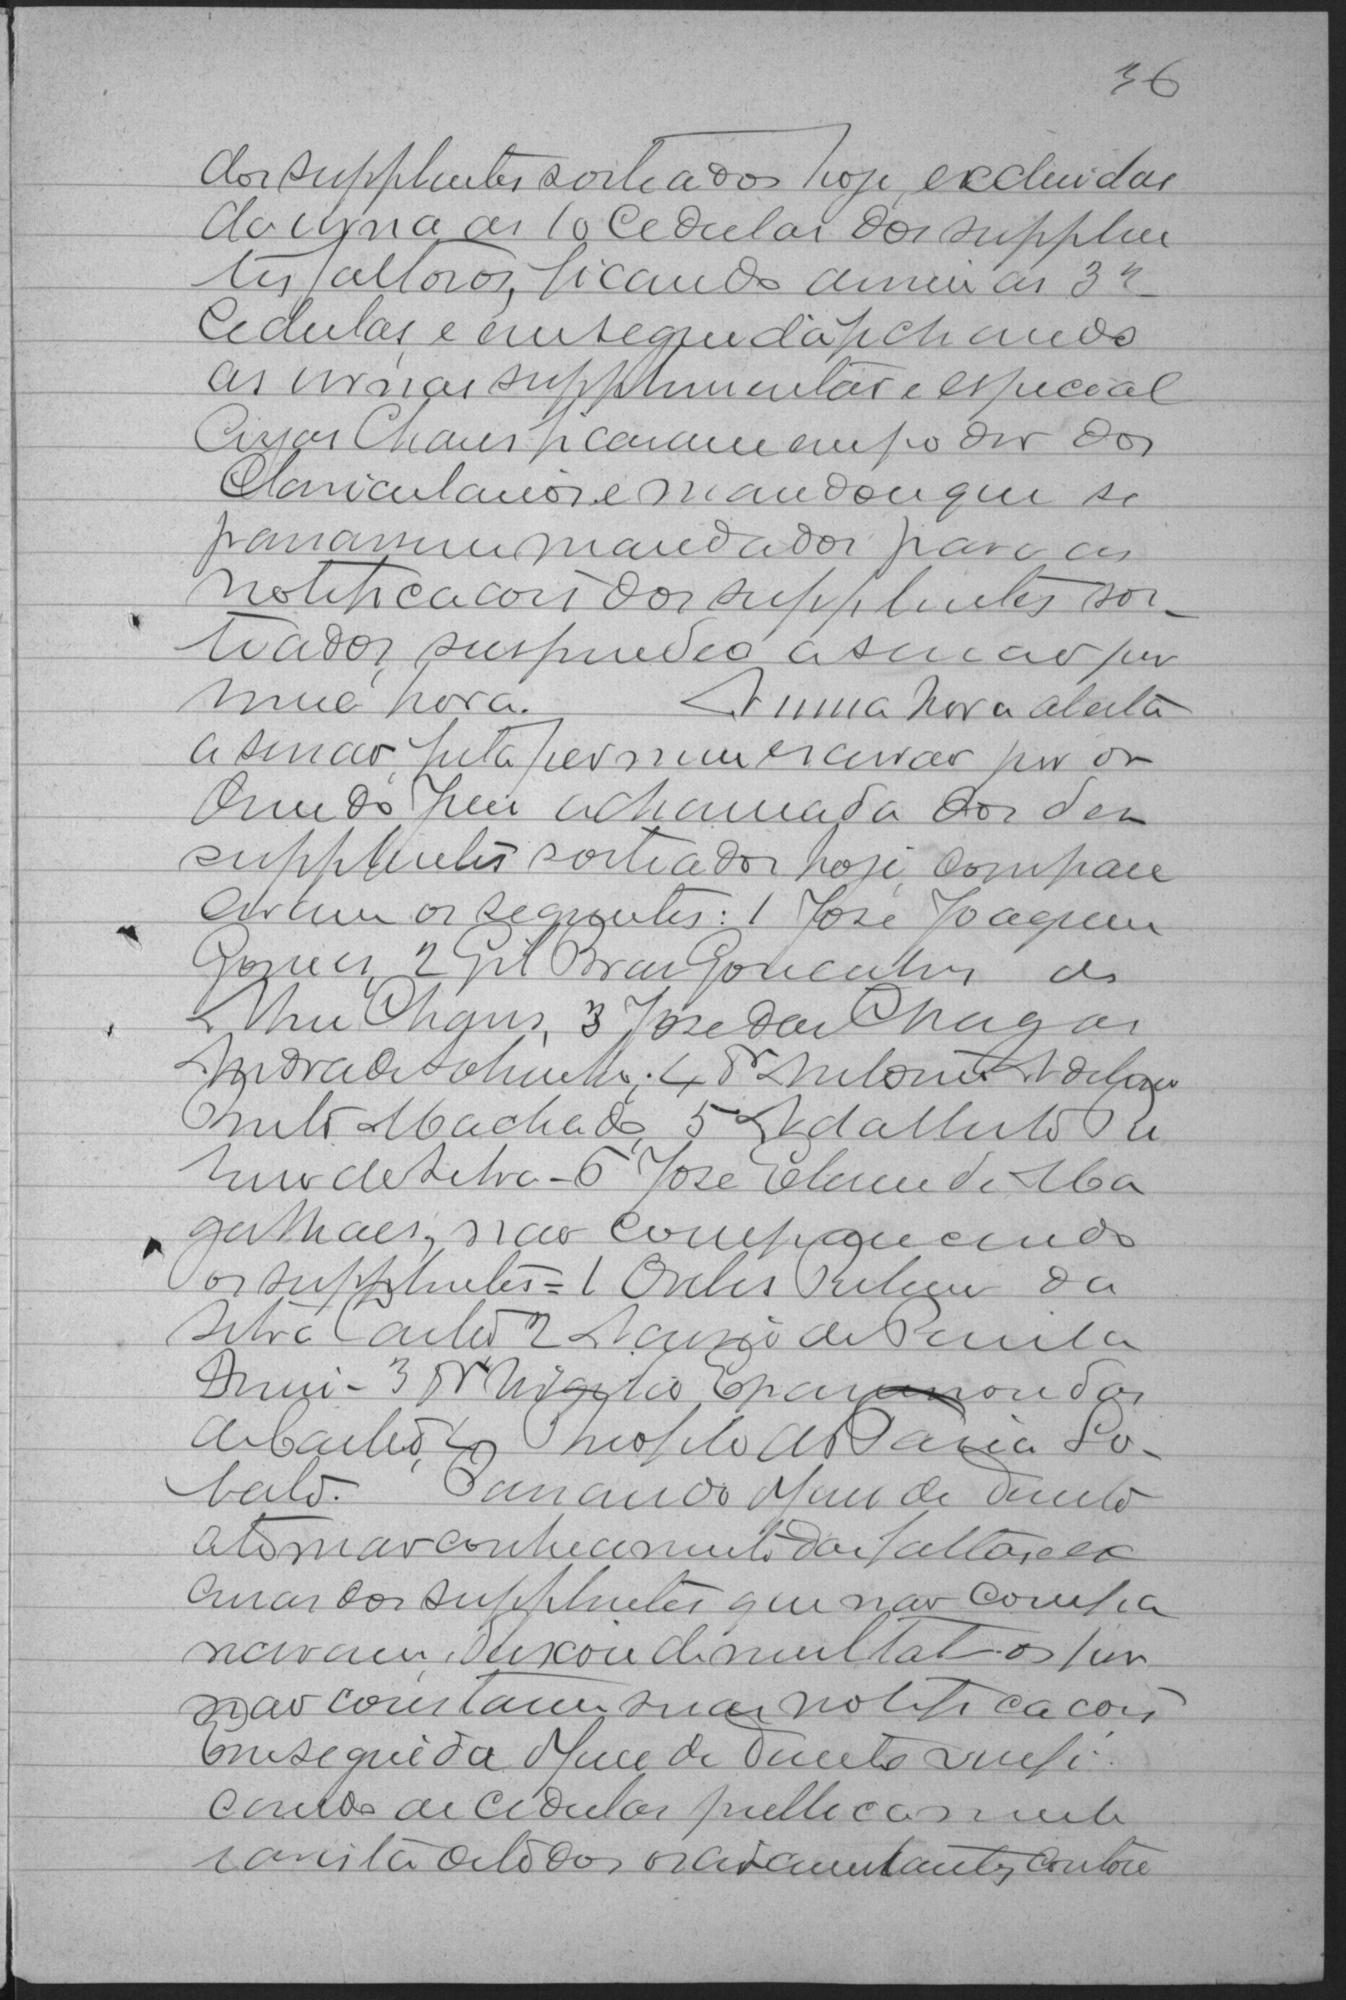 36
dos supplentes sorteados hoje, excluidas
da urna as 10 Cedulas dos supplen
tes faltosos, ficando assim as 32
Cedulas, e em seguida fechando
as urnas supplementar e especial
Cujas Chaves ficaram em poder dos
Clavicularios e mandou que se
passassem mandados para as
notificacoes dos supplentes sor-
teados, suspendeo a sessao por
uma hora. A uma hora aberta
a sessao, feita por mim escrivao por or
dem do Juiz a chamada dos dez
supplentes sorteados hoje, compare
ceram os seguintes: 1 José Joaquim
Gomes, 2 Gil Braz Goncalves de
Chaves, 3 Jose das Chagas
Andrade Sobrinho, 4 Dr Antonio
Machado, 5 Adalberto Ri
beiro da Silva - 6 José de Ma
galhaes, nao comparecendo
os supplentes = 1 Ribeiro da
Silva Castro 2 de Paula
- 3 Dr Virgilio Epaminondas
de Castro, 4 Theophilo de Paria Lo-
bato. Passando o Juiz de Direito
a tomar conhecimento das faltas e es
cusas dos supplentes que nao compa
receram, deixou de multal-os por
nao constarem suas notificacoes
Em seguida o Juiz de Direito verifi-
cando as cedulas publicamente
a vista de todos os circumstantes, contou